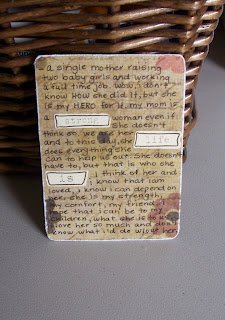 - a single mother raising
two baby girls and working
a full time job. wow, i don't
know HOW she did it, but she
is my HERO for it. my mom is
a strong woman even if
she doesn't
think so. we see her life
and to this day, she
does everything she
can to help us out. she doesn't
have to, but that is who she
is. i think of her and
i know that i am
loved, i know i can depend on
her. she is my strength,
my comfort, my friend.
hope that i can be to my
children, what she is to
love her so much and don't
know what i'd do w/out her.